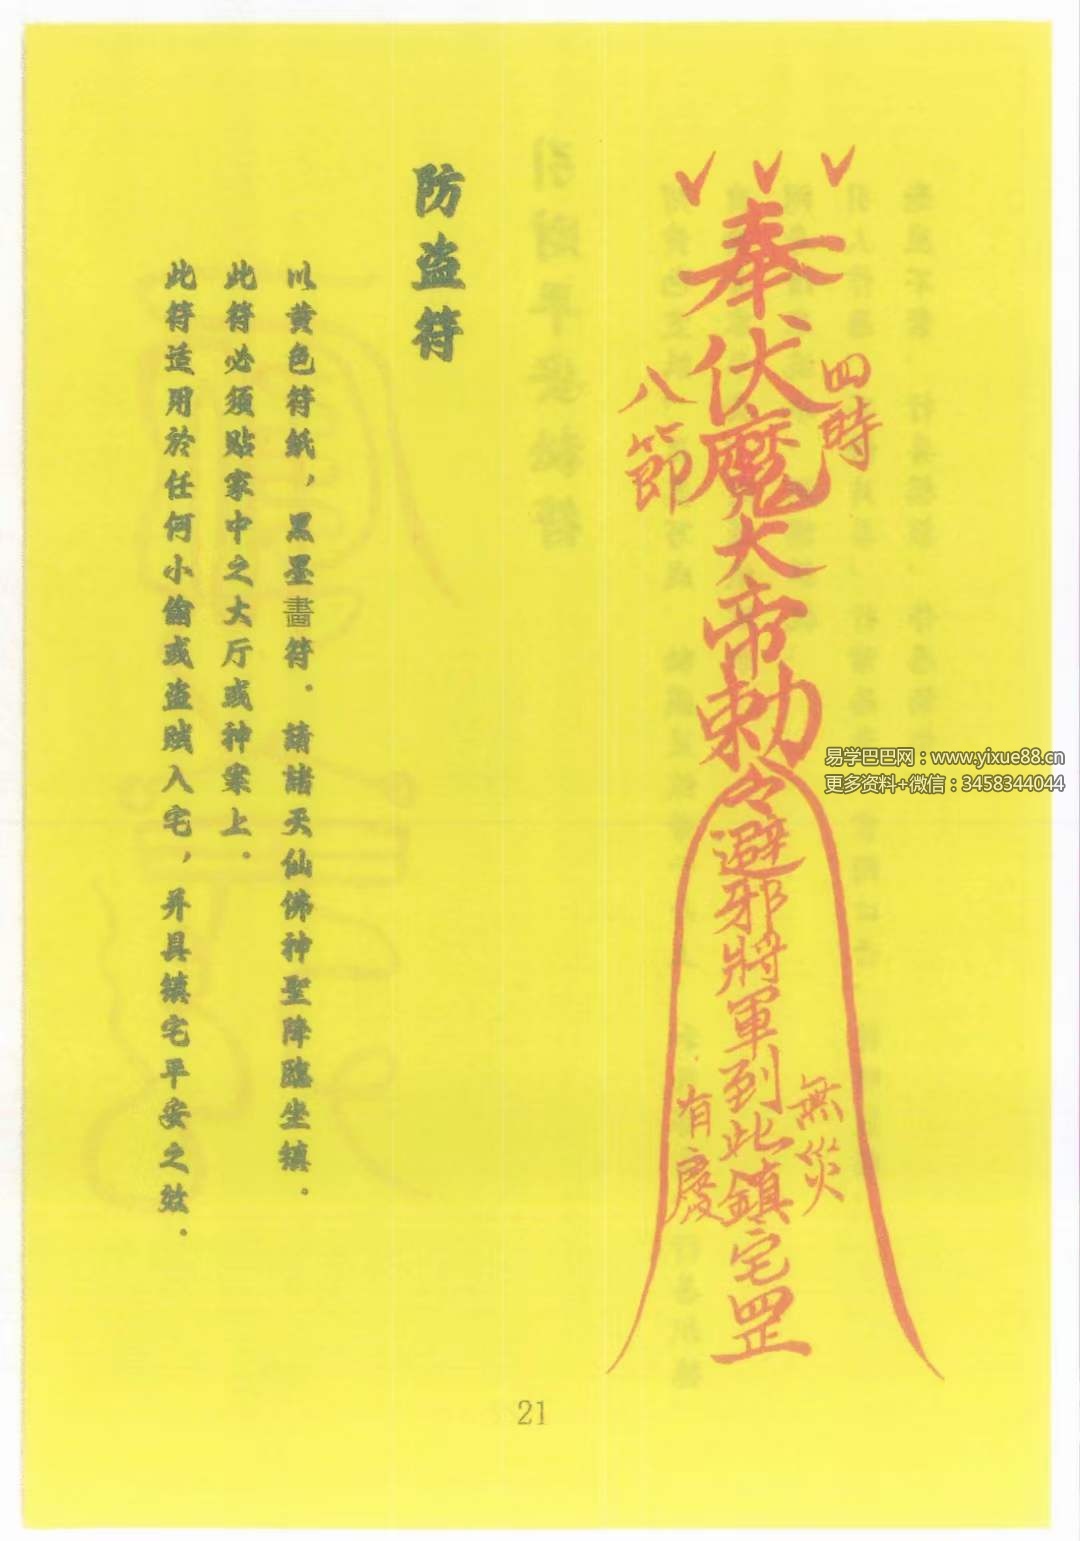 奉伏魔大帝勅令避邪將軍到此鎮宅罡
四時
八節
無災
有慶
防盗符
以黄色符紙，黑墨畵符．請諸天仙佛神聖降臨坐镇．
此符必须贴家中之大厅或神案上．
此符适用於任何小偷或盗贼入宅，并具镇宅平安之效．
易学巴巴网：www.yixue88.cn
更多资料+微信：3458344044
21